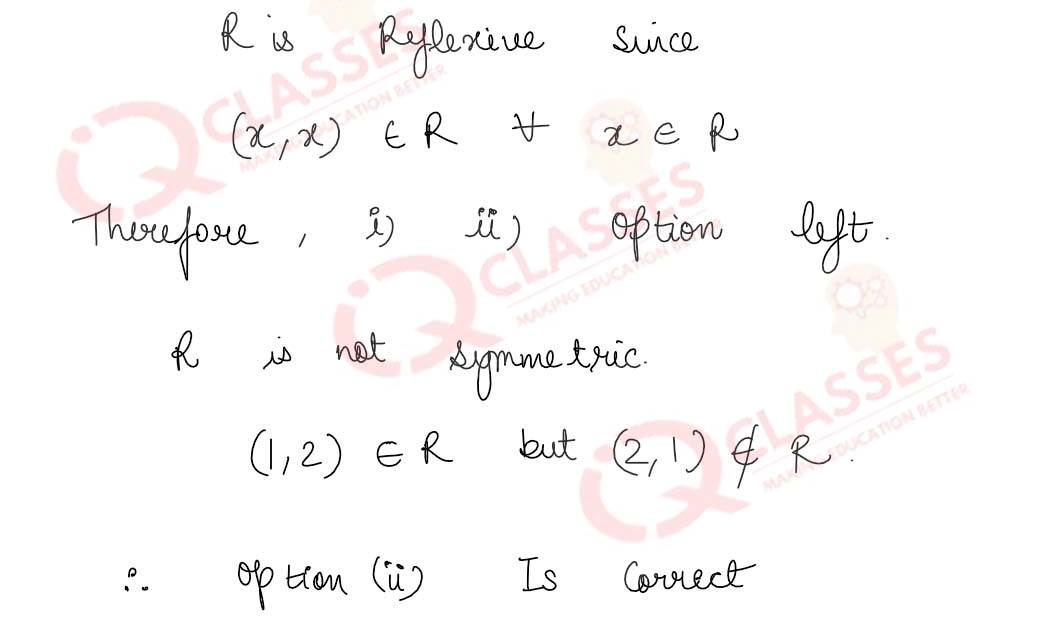 R is Reflexive Since
(x, x) ∈ R ∀ x ∈ R
Therefore, i) ii) option left.
R is not symmetric.
(1, 2) ∈ R but (2, 1) ∉ R.
∴ option (ii) Is Correct
IQ CLASSES
MAKING EDUCATION BETTER
IQ CLASSES
MAKING EDUCATION BETTER
IQ CLASSES
MAKING EDUCATION BETTER